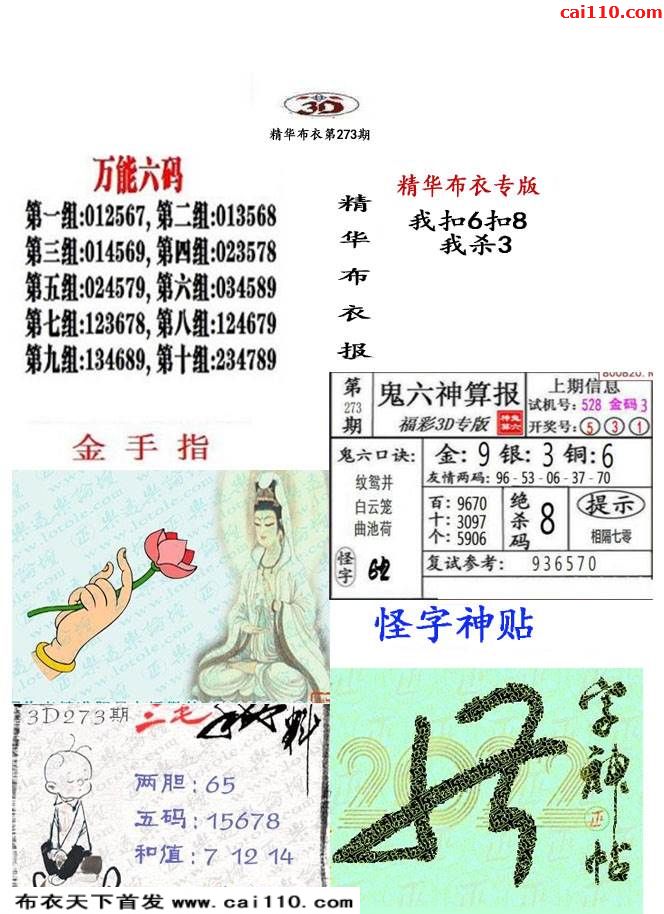 cai110.com
3D
精华布衣第273期
万能六码
第一组:012567, 第二组:013568
第三组:014569, 第四组:023578
第五组:024579, 第六组:034589
第七组:123678, 第八组:124679
第九组:134689, 第十组:234789
精华布衣报
精华布衣专版
我扣6扣8
我杀3
金手指
第273期
鬼六神算报
福彩3D专版
上期信息
试机号: 528 金码 3
开奖号: 5 3 1
鬼六口诀:
纹鸳并
白云笼
曲池荷
怪字
金: 9 银: 3 铜: 6
友情两码: 96-53-06-37-70
百: 9670
十: 3097
个: 5906
绝杀码 8
提示
相隔七零
复试参考: 936570
怪字神贴
3D273期
三毛
两胆: 65
五码: 15678
和值: 7 12 14
2022
字神帖
布衣天下首发 www.cai110.com